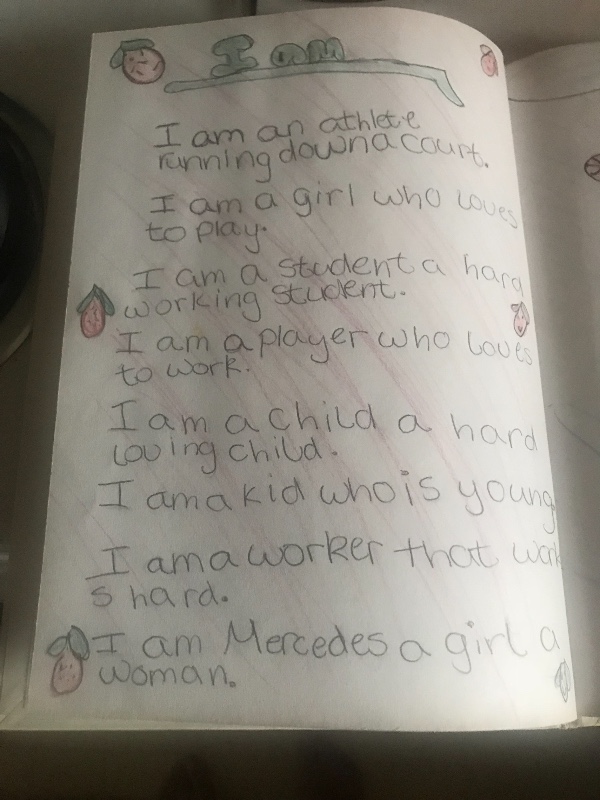 I am
I am an athlete
running down a court.
I am a girl who loves
to play.
I am a student a hard
working student.
I am a player who loves
to work.
I am a child a hard
loving child.
I am a kid who is young
I am a worker that work
s hard.
I am Mercedes a girl a
woman.